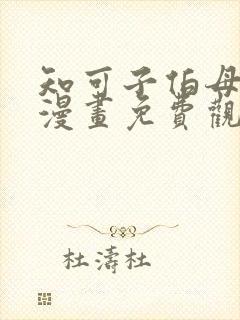 知可子伯母
漫畫免費觀
杜濤杜